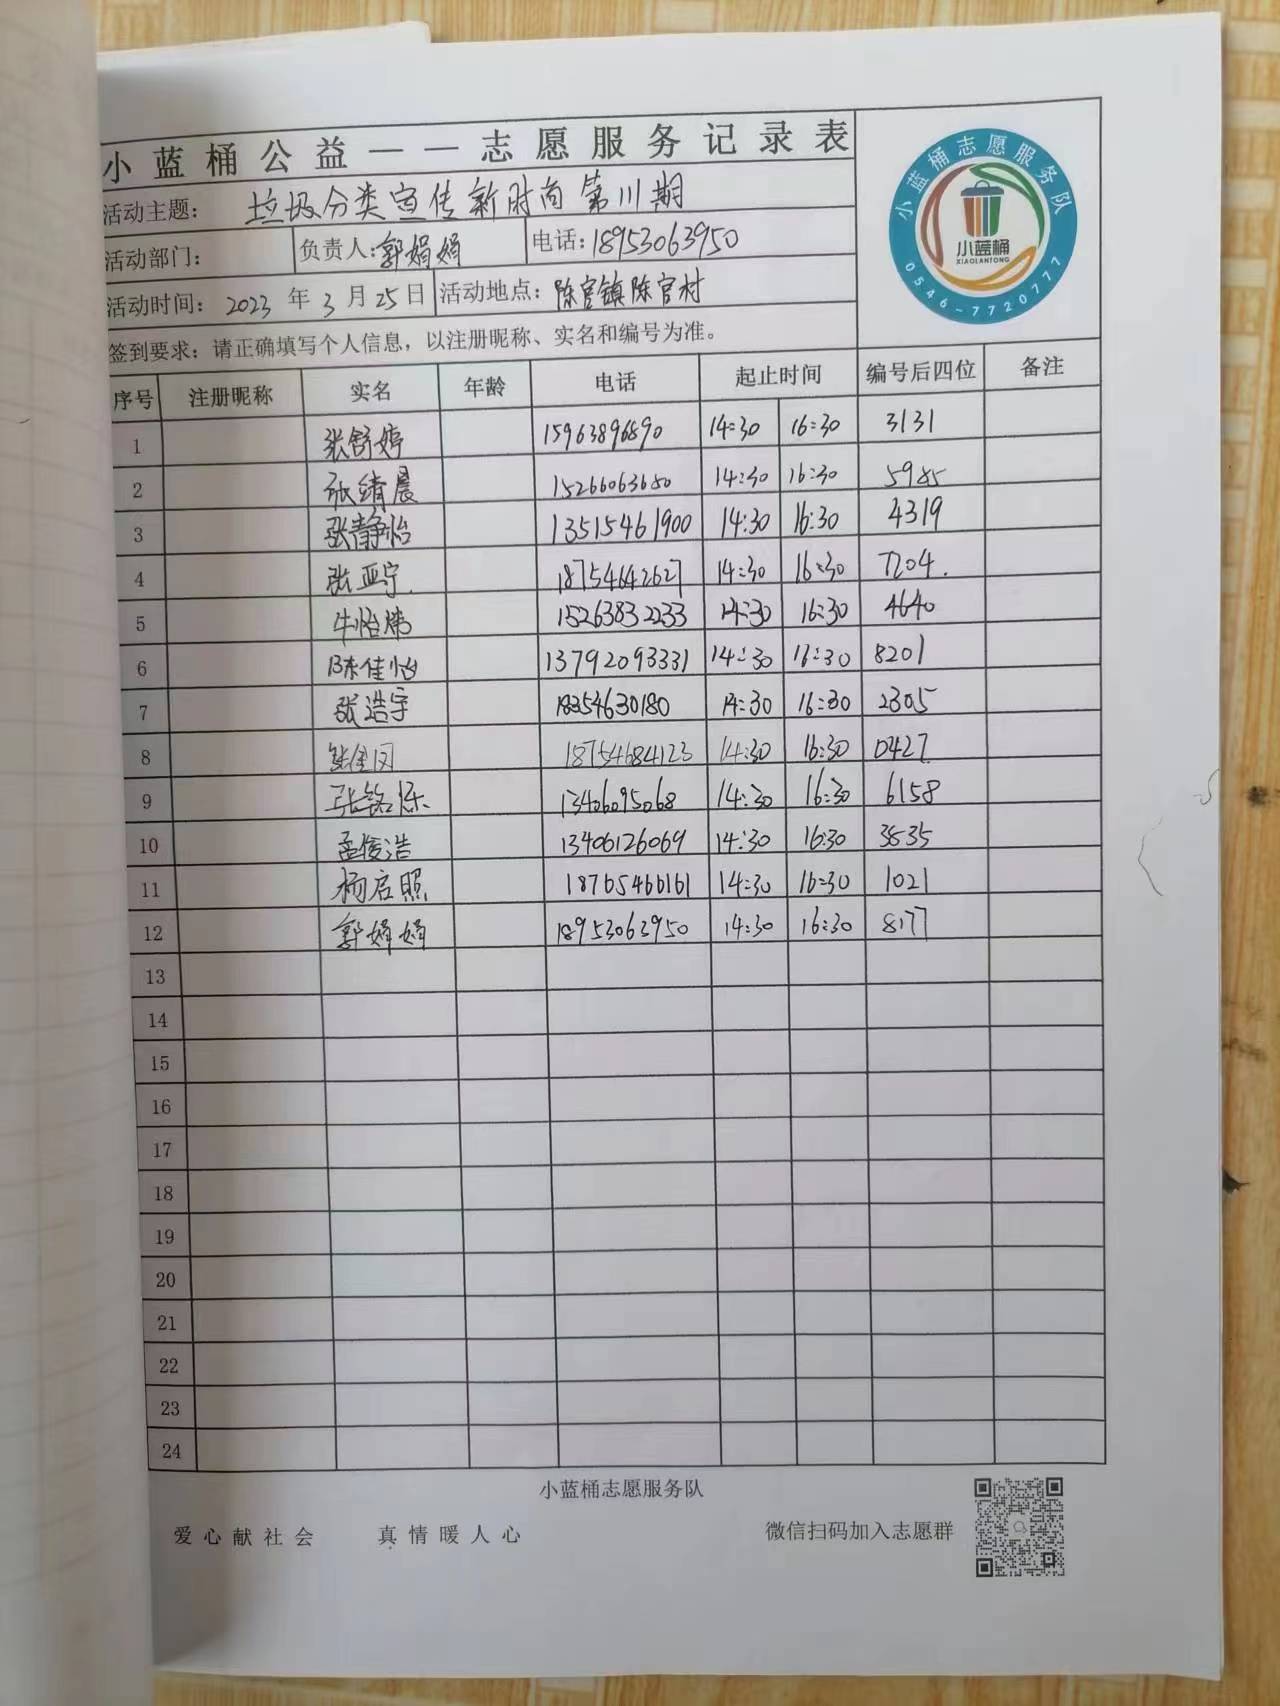 小蓝桶公益——志愿服务记录表
小蓝桶志愿服务队
小蓝桶
XIAOLANTONG
0546-7720777
活动主题： 垃圾分类宣传新时尚第111期
活动部门： 负责人：郭娟娟 电话：18953063950
活动时间： 2023 年 3 月 25 日 活动地点：陈官镇陈官村
签到要求：请正确填写个人信息，以注册昵称、实名和编号为准。
序号 注册昵称 实名 年龄 电话 起止时间 编号后四位 备注
1 张舒婷 15963896890 14:30 16:30 3131
2 张晴晨 15266063680 14:30 16:30 5985
3 张静怡 13515461900 14:30 16:30 4319
4 张亚宁 18754642627 14:30 16:30 7204.
5 牛怡 15263832233 14:30 16:30 4640
6 陈佳怡 13792093331 14:30 16:30 8201
7 张浩宇 18354630180 14:30 16:30 2305
8 18754684123 14:30 16:30 0427
9 张铭烁 13406095068 14:30 16:30 6158
10 孟俊浩 13406126069 14:30 16:30 3535
11 杨启照 18765466161 14:30 16:30 1021
12 郭娟娟 18953063950 14:30 16:30 8177
13
14
15
16
17
18
19
20
21
22
23
24
小蓝桶志愿服务队
爱心献社会 真情暖人心 微信扫码加入志愿群